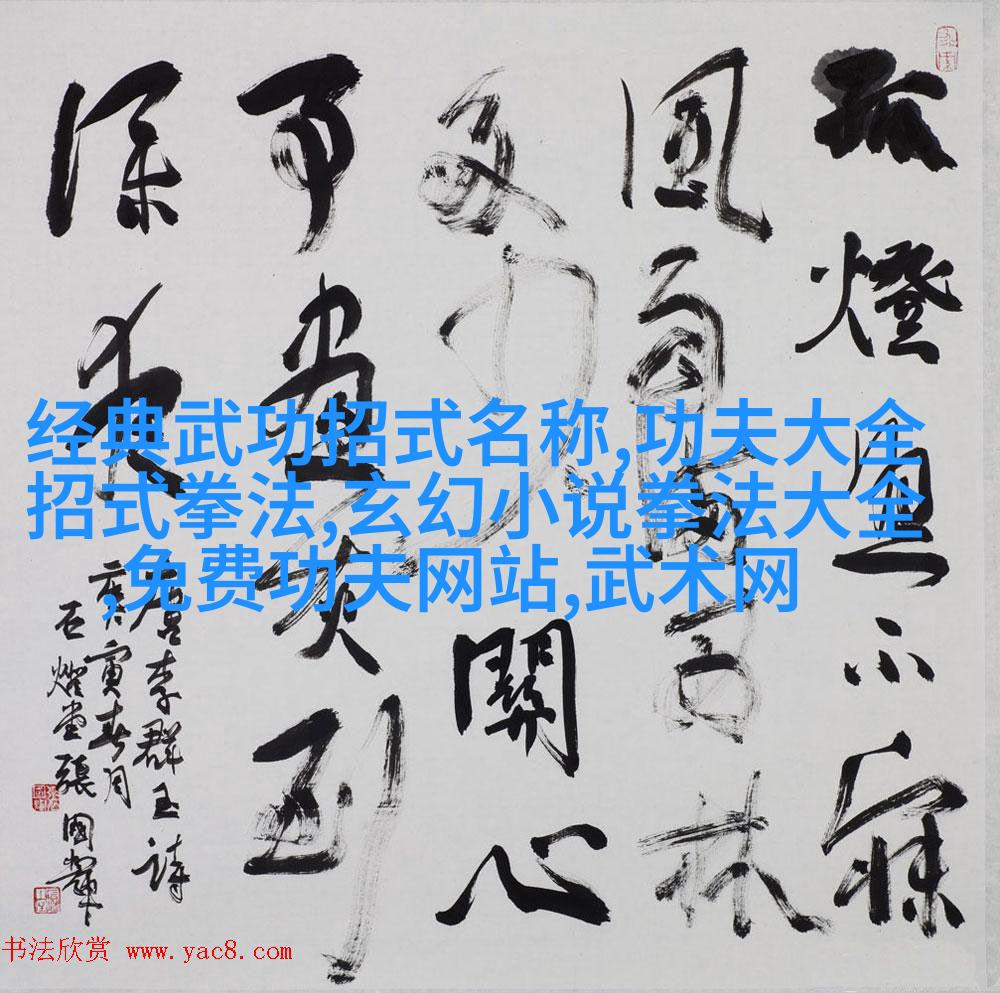 经典武功招式名称,功夫大全
招式拳法,玄幻小说拳法大全
,免费功夫网站,武术网
孤燈照不寐
風雨滿西林
多少關心
事書灰到
深夜
唐李群玉詩
庚寅春月
石燈堂張國
书法欣赏 www.yac8.com